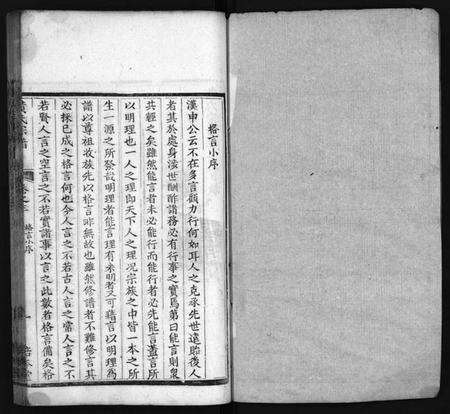 格言小序
漢申公云不在多言顧力行何如耳人之克承先世遠貽後人
者其於處身涉世酬酢諸務必有行事之實焉第曰能言則衆
共輕之矣雖然能言者未必能行而能行者必先能言蓋言所
以明理也一人之理即天下人之理况宗族之中皆一本之所
生一源之所發設明理者能言理有未明者可藉言以明理焉
譜以尊祖收族先以格言非無故也雖然修譜者不難修言其
必採已成之格言何也今人言之不若古人言之常人言之不
若賢人言之空言之不若實諸事以言之此數者格言備矣格
氏 譜 卷之 格言小序 一